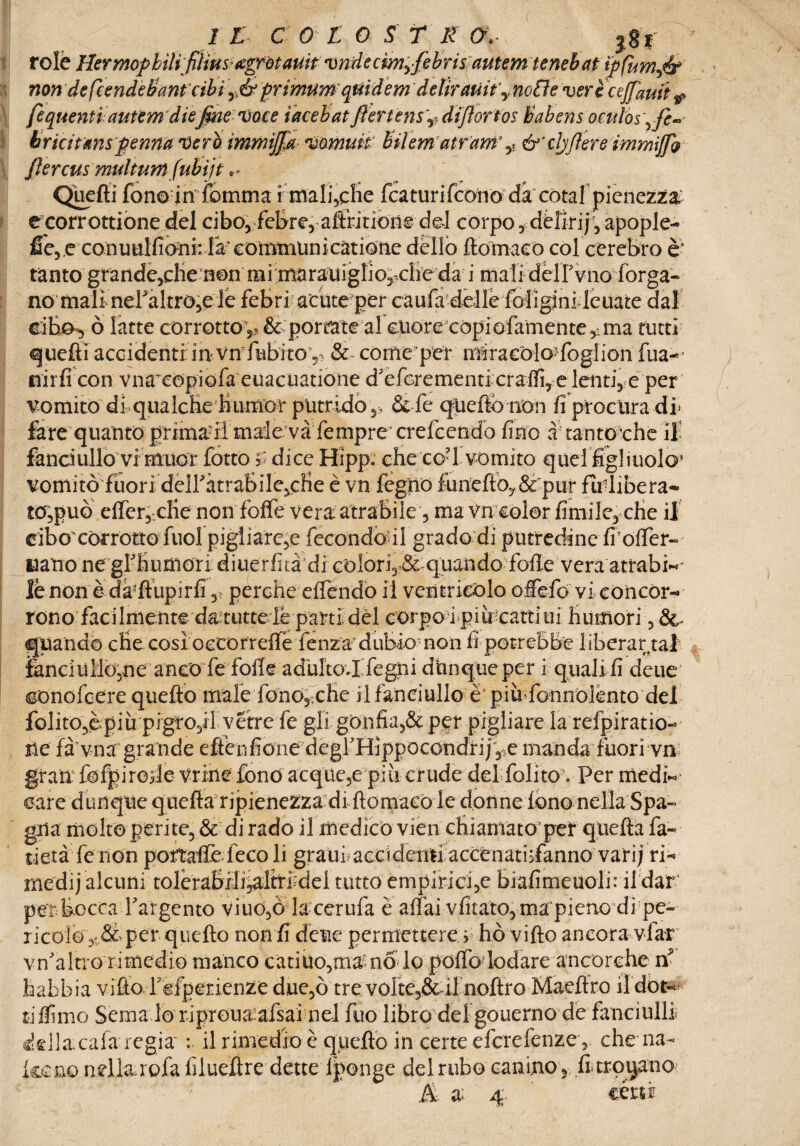 IL COLOSTRO. 381
role Hermophili filius ægrotauit vndecim, febris autem tenebat ipsum, &
non descendebant cibi, & primum quidem delirauit, nocte vere cessauit
sequenti autem die sine voce iacebat stertens, distortos habens oculos, fe-
bricitans penna vero immissa vomuit bilem atram, & clystere immisso
stercus multum subijt.
Questi sono in somma i mali, che scaturiscono da cotal pienezza
e corrottione del cibo, febre, astritione del corpo, delirij, apople-
sie, e conuulsioni: la communicatione dello stomaco col cerebro è
tanto grande, che non mi marauiglio, che da i mali dell'vno sorga-
no mali nel'altro, e le febri acute per causa delle foligini leuate dal
cibo, ò latte corrotto, & portate al cuore copiosamente, ma tutti
questi accidenti in vn subito, & come per miracolo soglion sua-
nirsi con vna copiosa euacuatione d'escrementi crassi, e lenti, e per
vomito di qualche humor putrido, & se questo non si procura di
fare quanto prima il male và sempre crescendo sino à tanto che il
fanciullo vi muor sotto; dice Hipp. che co'l vomito quel figliuolo
vomitò fuori dell'atrabile, che è vn segno funesto, & pur fù libera-
to, può esser, che non fosse vera atrabile, ma vn color simile, che il
cibo corrotto suol pigliare, e secondo il grado di putredine si osser-
uano ne gl'humori diuersità di colori, & quando fosse vera atrabi-
le non è da stupirsi, perche essendo il ventricolo offeso vi concor-
rono facilmente da tutte le parti del corpo i più cattiui humori, &
quando che così occorresse senza dubio non si potrebbe liberar tal
fanciullo, ne anco se fosse adulto. I segni dunque per i quali si deue
conoscere questo male sono, che il fanciullo è più sonnolento del
solito, è più pigro, il vētre se gli gonfia, & per pigliare la respiratio-
ne fà vna grande estensione degl'Hippocondrij, e manda fuori vn
gran sospiro, le vrine sono acque, e più crude del solito. Per medi-
care dunque questa ripienezza di stomaco le donne sono nella Spa-
gna molto perite, & di rado il medico vien chiamato per questa sa-
tietà se non portasse seco li graui accidenti accenati; fanno varij ri-
medij alcuni tolerabili, altri del tutto empirici, e biasimeuoli: il dar
per bocca l'argento viuo, ò la cerusa è assai vsitato, ma pieno di pe-
ricolo, & per questo non si deue permettere; hò visto ancora vsar
vn'altro rimedio manco catiuo, ma nō lo posso lodare ancorche n'
habbia visto l'esperienze due, ò tre volte, & il nostro Maestro il dot-
tissimo Sema lo riproua assai nel suo libro del gouerno de fanciulli
della casa regia: il rimedio è questo in certe escresenze, che na-
scono nella rosa siluestre dette sponge del rubo canino, si trouano
A a 4 certi